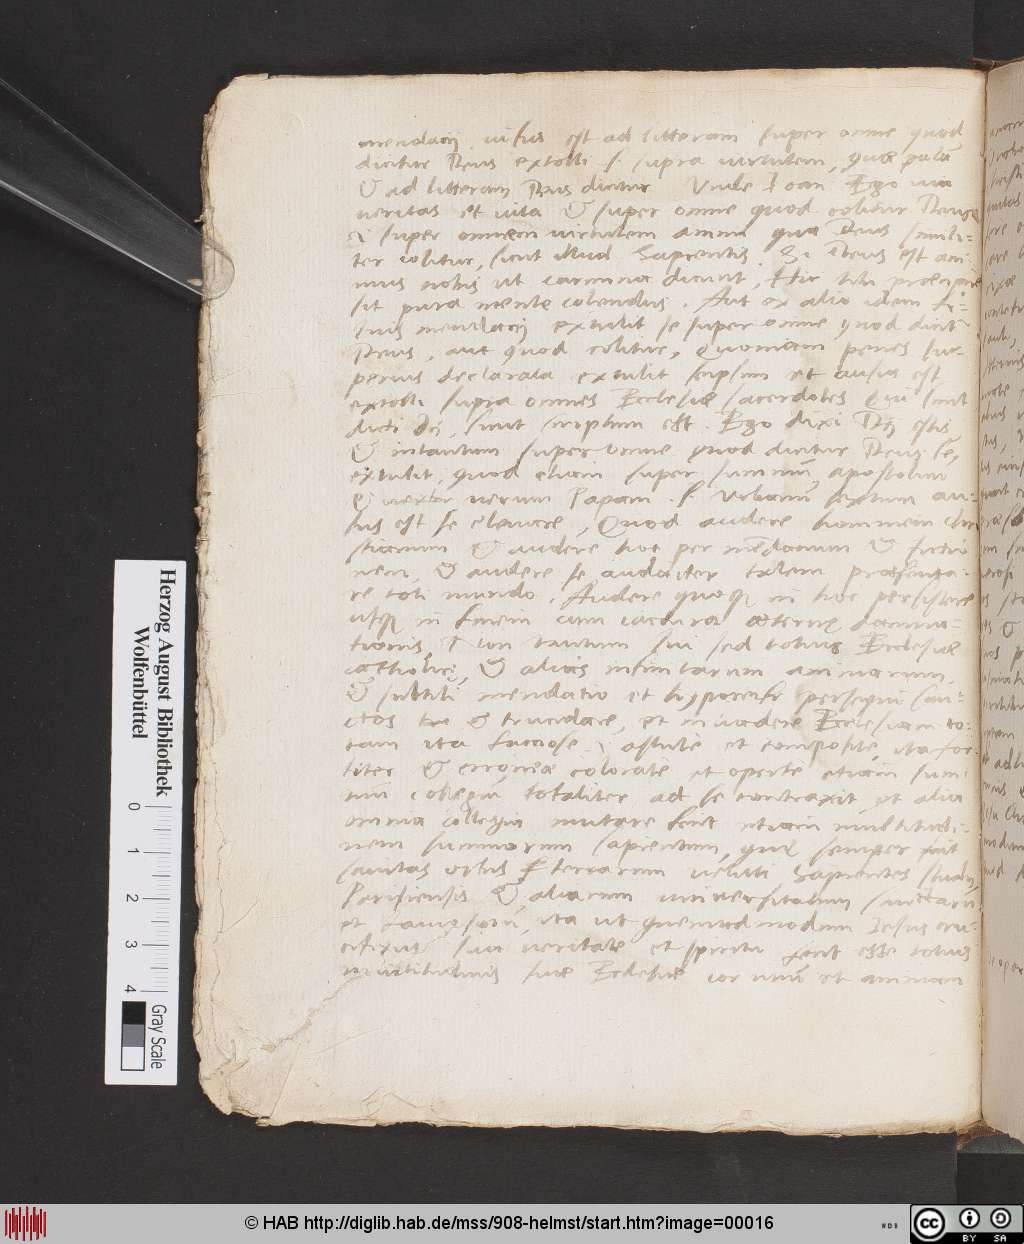 mendacij uisus est ad litteram super omne quod
dicitur Deus extolli .s. supra uirtutem, quae palā
& ad litteram Deus dicitur Unde Ioan Ego uia
ueritas et uita & super omne quod colitur Deus
.i. super omnem uirtutem animi qua Deus simili=
ter colitur, sicut illud Sapientis. Si Deus est ani=
mus nobis ut carmina dicunt, Hic tibi praecipue
sit pura mente colendus. Aut ex alio idem fi=
lius mendacij extulit se super omne quod dicit
Deus, aut quod colitur, Quoniam penes su=
perius declarata extulit seipsum et ausus est
extolli supra omnes Ecclesiae sacerdotes Qui sunt
dicti Dij, sicut scriptum est. Ego dixi Dij estis
& intantum super omne quod dicitur Deus se,
extulit, quod etiam super summū apostolum
& uerum Papam .s. Urbanū sextum au=
sus est se eleuare, Quod audere hominem chri
stianum & audere hoc per mēdacium & fictio
nem, & audere se audaciter talem praesenta=
re toti mundo. Audere quoque in hoc persistere
usque in finem cum iactura aeternę damna=
tionis, Non tantum sui sed totius Ecclesiae
catholicę, & alias infinitarum animarum
& subtili mendatio et persequi san=
ctos & trucidare, et inuadere Ecclesiam to=
tam ita .i. astute et composite, ita for=
titer & colorate et operte etiam sum=
mū collegiū totaliter ad se contraxit et alia
omnia collegia mutare fecit etiam multitudi=
nem summorum sapientum, quę semper fuit
sanitas orbis terrarum uelutti Sapientes studij
Parisiensis & aliarum uniuersitatum sanctarū
et ita ut quemadmodum Iesus cru=
cifixus sua ueritate et spiritu fecit esse totius
multitudinis suae Ecclesiae cor unū et animam
Herzog August Bibliothek
Wolfenbüttel
0 1 2 3 4
Gray Scale
© HAB http://diglib.hab.de/mss/908-helmst/start.htm?image=00016
WDB
cc BY SA